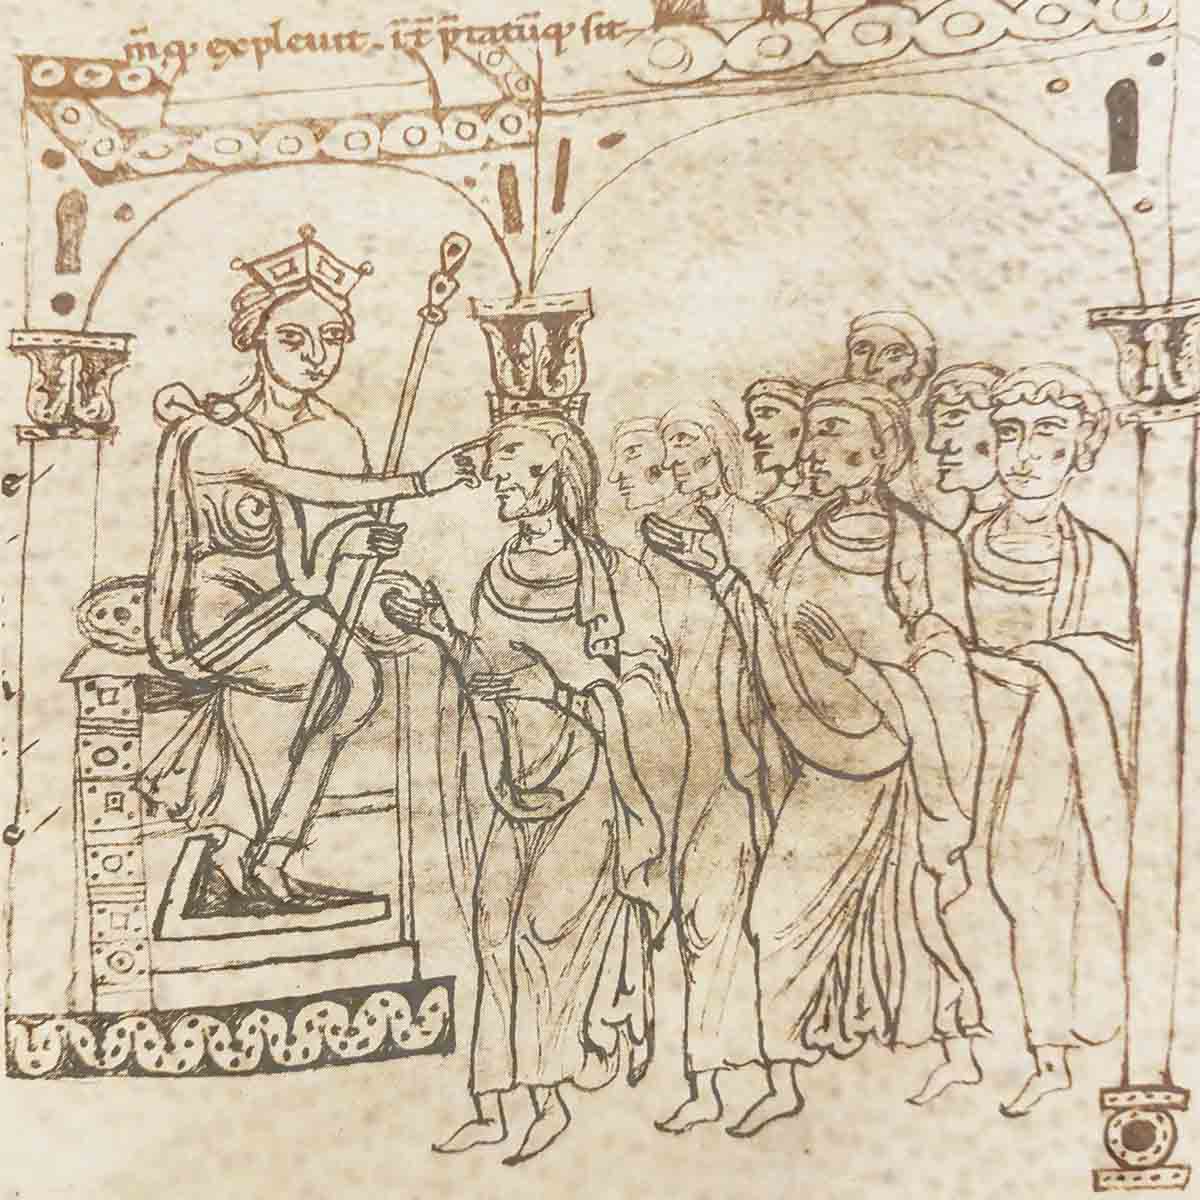 m̄q; expleuit. it̄ p̄tatūq; sit